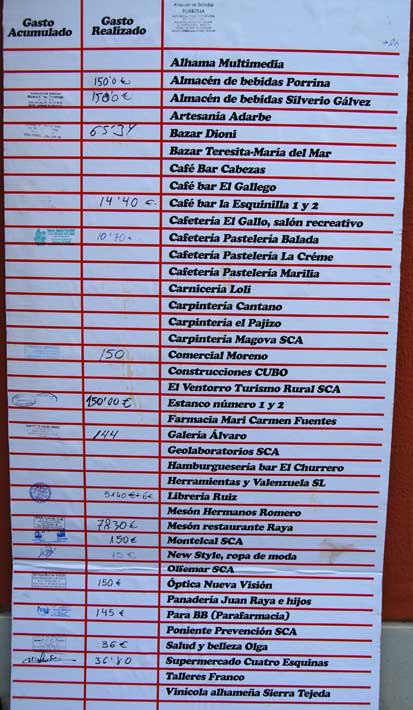 Gasto Acumulado
Gasto Realizado
Almacén de Bebidas
PORRINA
Alhama Multimedia
150'0 € Almacén de bebidas Porrina
150'0 € Almacén de bebidas Silverio Gálvez
Artesanía Adarbe
65'34 Bazar Dioni
Bazar Teresita-María del Mar
Café Bar Cabezas
Café bar El Gallego
14'40 €. Café bar la Esquinilla 1 y 2
Cafetería El Gallo, salón recreativo
10'70 € Cafetería Pastelería Balada
Cafetería Pastelería La Créme
Cafetería Pastelería Marilia
Carnicería Loli
Carpintería Cantano
Carpintería el Pajizo
Carpintería Magova SCA
150 Comercial Moreno
Construcciones CUBO
El Ventorro Turismo Rural SCA
150'00 € Estanco número 1 y 2
Farmacia Mari Carmen Fuentes
144 Galería Álvaro
Geolaboratorios SCA
Hamburguesería bar El Churrero
Herramientas y Valenzuela SL
51'40 €+6€ Librería Ruiz
Mesón Hermanos Romero
78'30 € Mesón restaurante Raya
150 € Montelcal SCA
15 € New Style, ropa de moda
Olfemar SCA
150 € Óptica Nueva Visión
Panadería Juan Raya e hijos
145 € Para BB (Parafarmacia)
Poniente Prevención SCA
36 € Salud y belleza Olga
36'80 Supermercado Cuatro Esquinas
Talleres Franco
Vinícola alhameña Sierra Tejeda